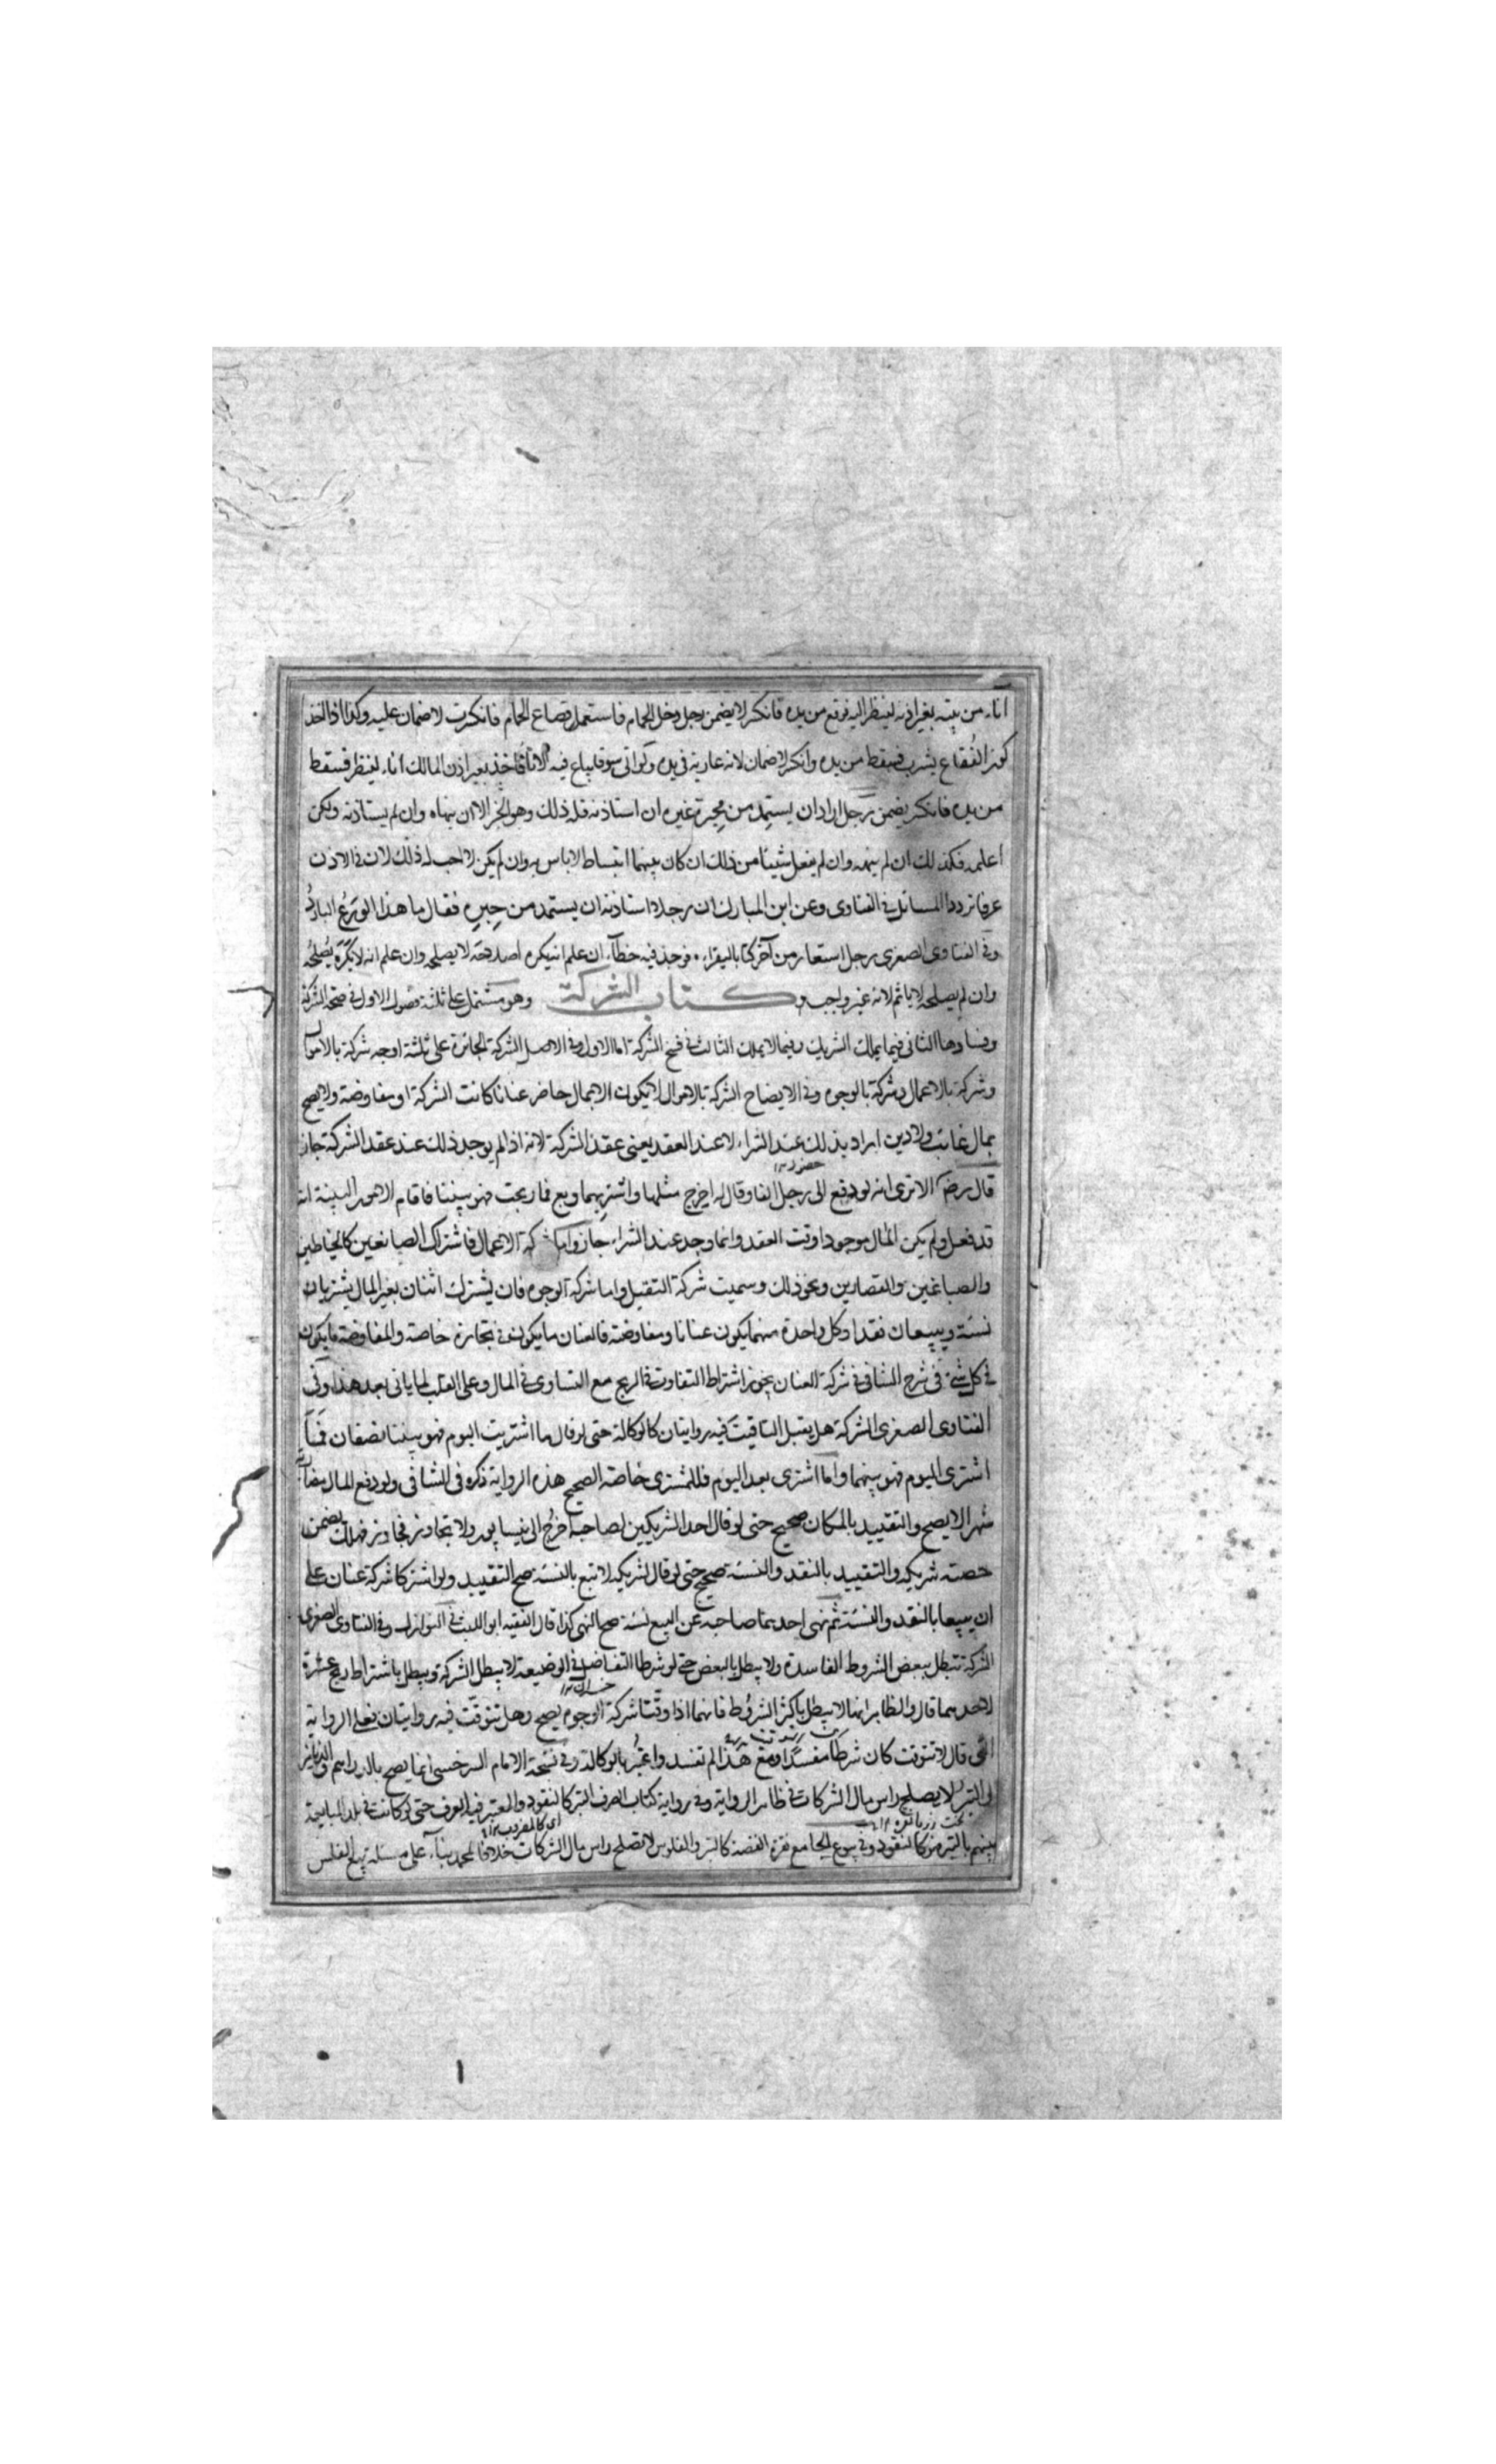 اناء من بيته بغير اذنه لينظر اليه فوقع من يده فانكسر لا يضمن رجل دخل الحمام فاستعمل قصاع الحمام فانكسرت لا ضمان عليه وكذا اذا اخذ
كوز الفُقاع يشرب فسقط من يده وانكسر لا ضمان لانه عارية في يده ولو اتى سوقا يباع فيه الاناء فاخذ بغير اذن المالك اناء لينظر فسقط
من يده فانكسر يضمن رجل اراد ان يستمد من محبرة غيره ان استاذنه فله ذلك وهو الا ان ينهاه وان لم يستاذنه ولكن
اعلمه فكذلك ان لم ينهه وان لم يفعل شيئا من ذلك ان كان بينهما انبساط لا باس به وان لم يكن لا احب له ذلك لان في الاذن
عرفا تردد المسائل في الفتاوى وعن ابن المبارك ان رجلا استاذنه ان يستمد من حبره فقال ما هذا الورع البارد
وفي الفتاوى الصغرى رجل استعار من آخر كتابا ليقراه فوجد فيه خطأ ان علم انه يكره اصلاحه لا يصلحه وان علم انه لا يكره يصلحه
وان لم يصلحه لا ياثم لانه غير واجب كتاب الشركة وهو مشتمل على ثلثة فصول الاول في صحة الشركة
وفسادها الثاني فيما يملك الشريك وفيما لا يملك الثالث في فسخ الشركة اما الاول وفي الاصل الشركة الجائزة على ثلثة اوجه شركة بالاموال
وشركة بالاعمال وشركة بالوجوه وفي الايضاح الشركة بالاموال لا يكون الا بمال حاضر عنانا كانت الشركة او مفاوضة ولا يصح
بمال غائب ولا دين اراد بذلك عند الشراء لا عند العقد يعني عقد الشركة لانه اذا لم يوجد ذلك عند عقد الشركة جاز
قال رضه الا ترى انه لو دفع الى رجل الفا وقال له اخرج مثلها واشتر بهما وبع فما ربحت فهو بيننا فاقام الامور البينة انه
قد فعل ولم يكن المال موجودا وقت العقد وانما وجد عند الشراء جاز واما شركة الاعمال فاشتراك الصانعين كالخياطين
والصباغين والقصارين ونحو ذلك وسميت شركة التقبل واما شركة الوجوه فان يشترك اثنان بغير المال يشتريان
نسئة ويبيعان نقدا وكل واحدة منهما يكون عنانا ومفاوضة فالعنان ما يكون في تجارة خاصة والمفاوضة ما يكون
في كل شئ في شرح الشافى في شركة العنان يجوز اشتراط التفاوت في الربح مع التساوى في المال وعلى القلب لما ياتى بعد هذا وفي
الفتاوى الصغرى الشركة هل يقبل التاقيت فيه روايتان كالوكالة حتى لو قال ما اشتريت اليوم فهو بيننا نصفان فما
اشترى اليوم فهو بينهما وما اشترى بعد اليوم فللمشترى خاصة الصحيح هذه الرواية ذكره في الشافى ولو دفع المال مضاربة
شهرا لا يصح والتقييد بالمكان صحيح حتى لو قال احد الشريكين لصاحبه اخرج الى نيسابور ولا تجاوز فجاوز فهلك يضمن
حصة شريكه والتقييد بالنقد والنسئة صحيح حتى لو قال لشريكه لا تبع بالنسئة صح التقييد ولو اشتركا شركة عنان على
ان يبيعا بالنقد والنسئة ثم نهى احدهما صاحبه عن البيع نسئة صح النهى كذا قال الفقيه ابو الليث في النوازل وفي الفتاوى الصغرى
الشركة تبطل ببعض الشروط الفاسدة ولا يبطل بالبعض حتى لو شرطا التفاضل في الوضيعة لا يبطل الشركة ويبطل باشتراط ربح عشرة
لاحدهما قال والظاهر انها لا يبطل باكثر الشروط فانهما اذا وقتا شركة الوجوه يصح وهل يتوقت فيه روايتان فعلى الرواية
التى قال لا تتوقت كان شرطا مفسدا ومع هذا لم تفسد واعتبر بالوكالة وفي نسخة الامام السرخسى انما يصح بالدراهم والدنانير
التبر لا يصلح راس مال الشركات في ظاهر الرواية وفي رواية كتاب الصرف التبر كالنقود والمعتبر فيه العرف حتى لو كانت في بلد المبايعة
بينهم بالتبر فهو كالنقود وفي بيوع الجامع نقرة الفضة كالتبر والفلوس لا تصلح راس مال الشركات خلافا لمحمد بناء على مسئلة بيع الفلس